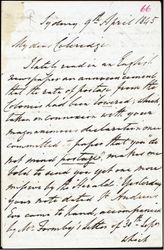 66
Sydney 9th April 1845
My dear Coleridge
I lately read in an English
newspaper an announcement
that the rate of postage from the
Colonies had been lowered; which
taken in connexion with your
magnanimous declaration once
committed to paper that you do
not mind postage, makes me
bold to send you yet one more
missive by the Herald. Yesterday
your note dated St Andrew's
Eve came to hand, accompanied
by Mr Hornby's letter of 14 Septr
which